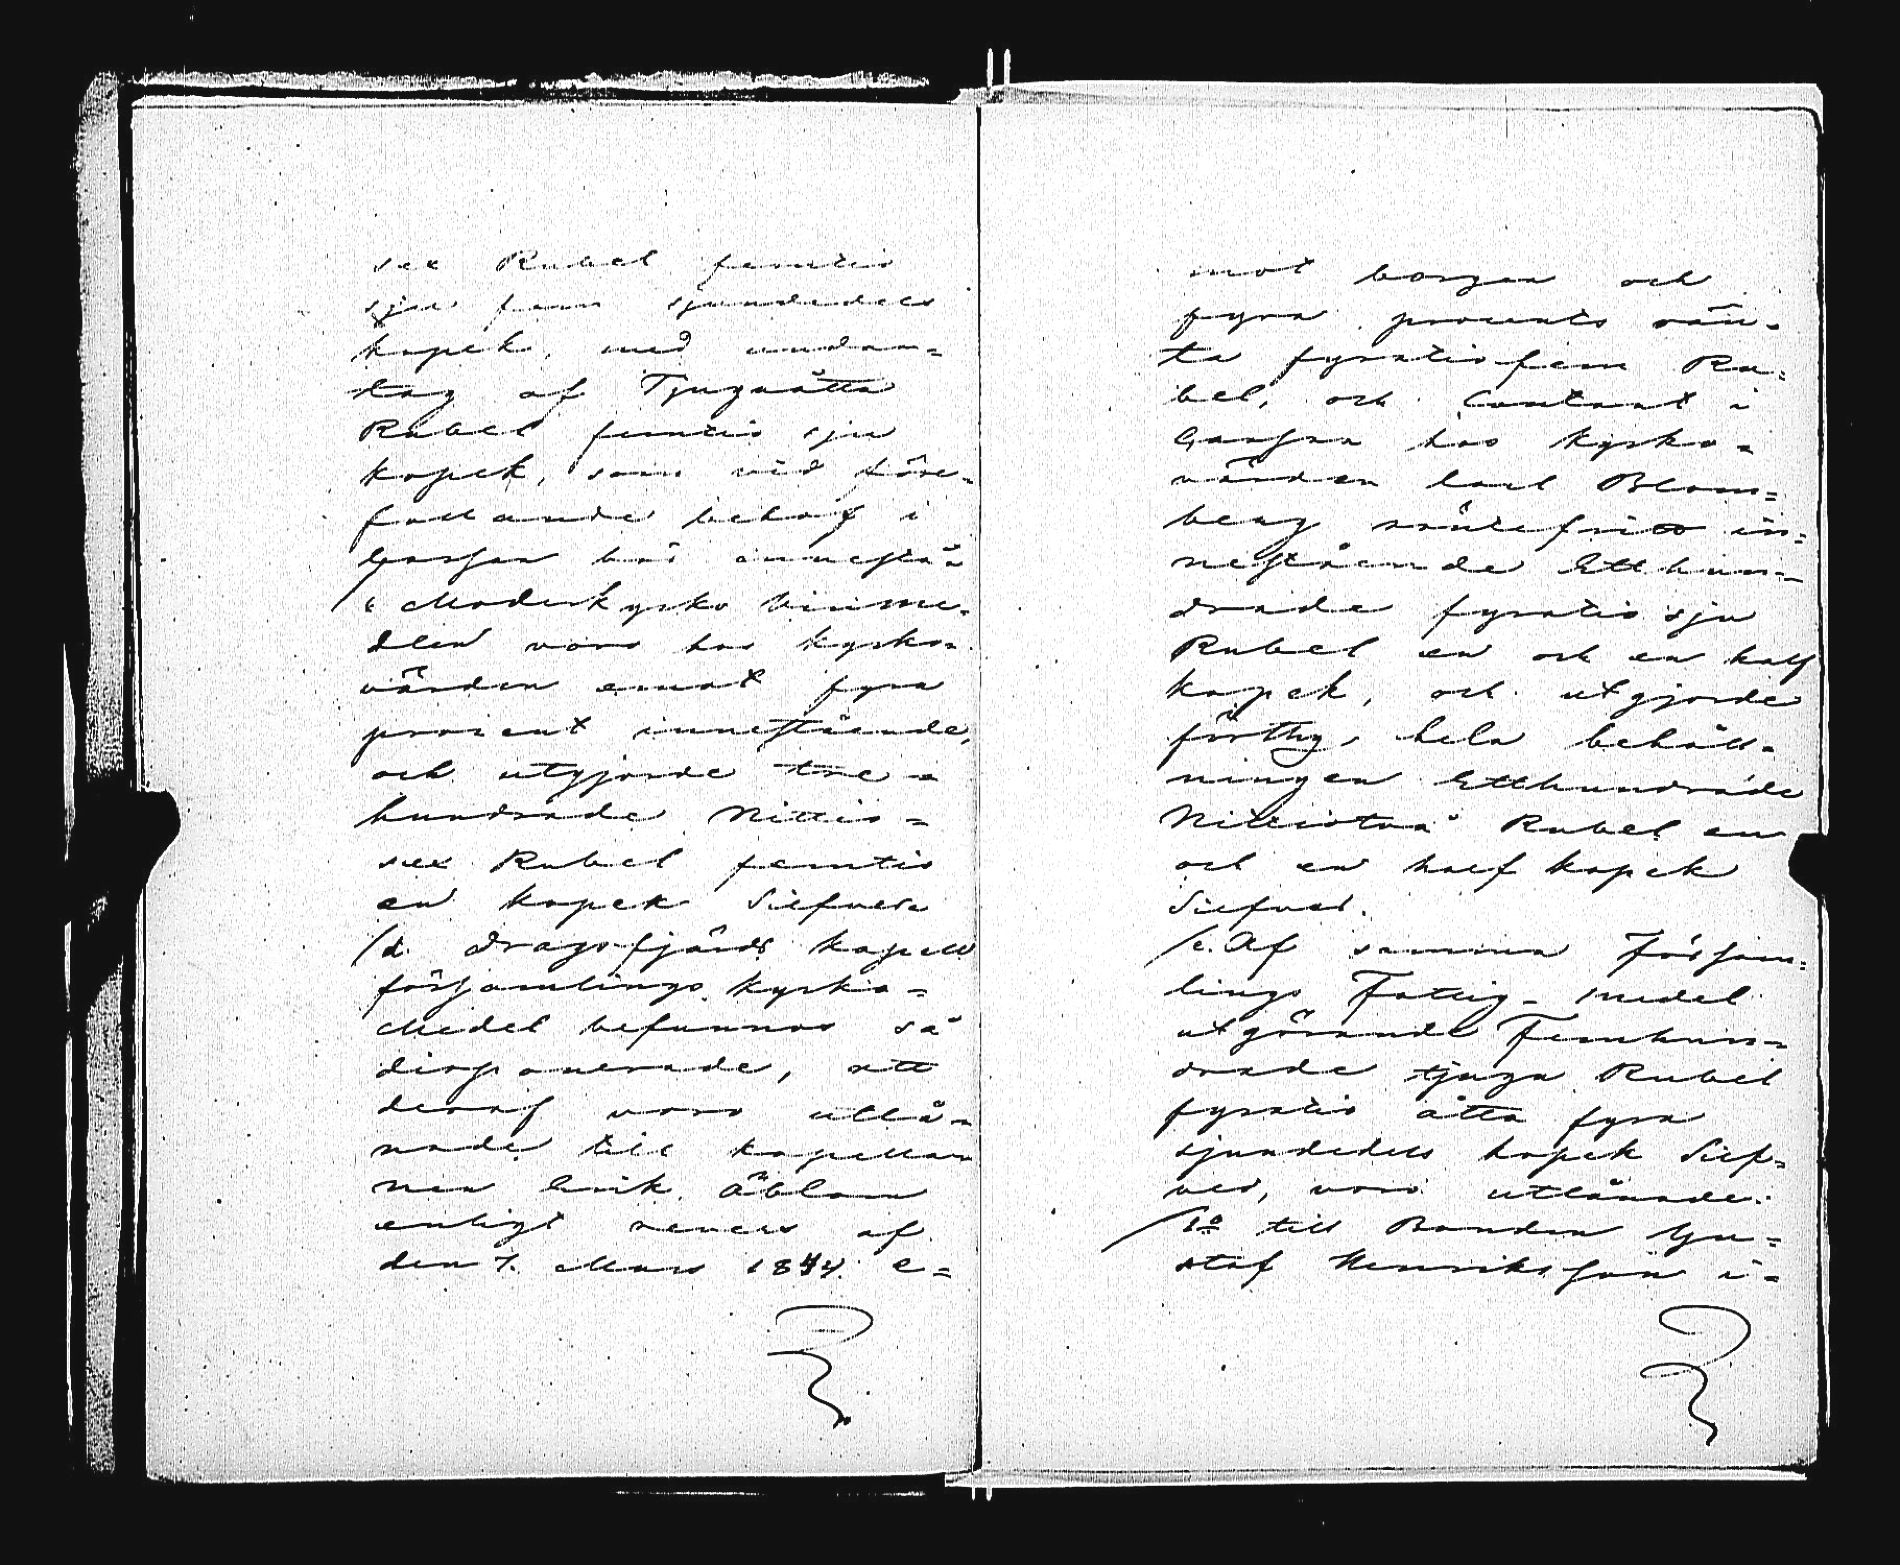 sex Rubel femtio
sju fem sjundedels
kopek, med undan=
tag af Tjuguåtta
Rubel femtio sju
kopek, som vid före=
fallande behof i
Cassan bör innestå.
/c Moderkyrko Vinme=
dlen voro hos kyrko=
värden emot fyra
procent innestående,
och utgjorde tre=
hundrade Nittio=
sex Rubel femtio
en kopek Silfver
/d. Dragsfjärds kapell
församlings kyrko=
Medel befunnos så
disponerade, att
deraf voro utlå=
nade till kapellan
nen Erik Öblom
enligt revers af
den 7. Mars 1844. e=
mot borgen och
fyra procents rän=
ta fyratiofem Ru=
bel, och Contant i
Cassan hos kyrko=
värden Carl Blom=
berg räntefritt in=
nestående Etthun=
drade fyratio sju
Rubel en och en half
kopek, och utgjorde
förthy, hela behåll=
ningen Etthundrade
Nittiotvå Rubel en
och en half kopek
Silfver.
/e. Af samma Försam=
lings Fattig=medel
utgörande Femhun=
drade tjugu Rubel
fyratio åtta fyra
sjundedels kopek Silf=
ver, voro utlånade:
/1º till Bonden Gu=
staf Henriksson i=